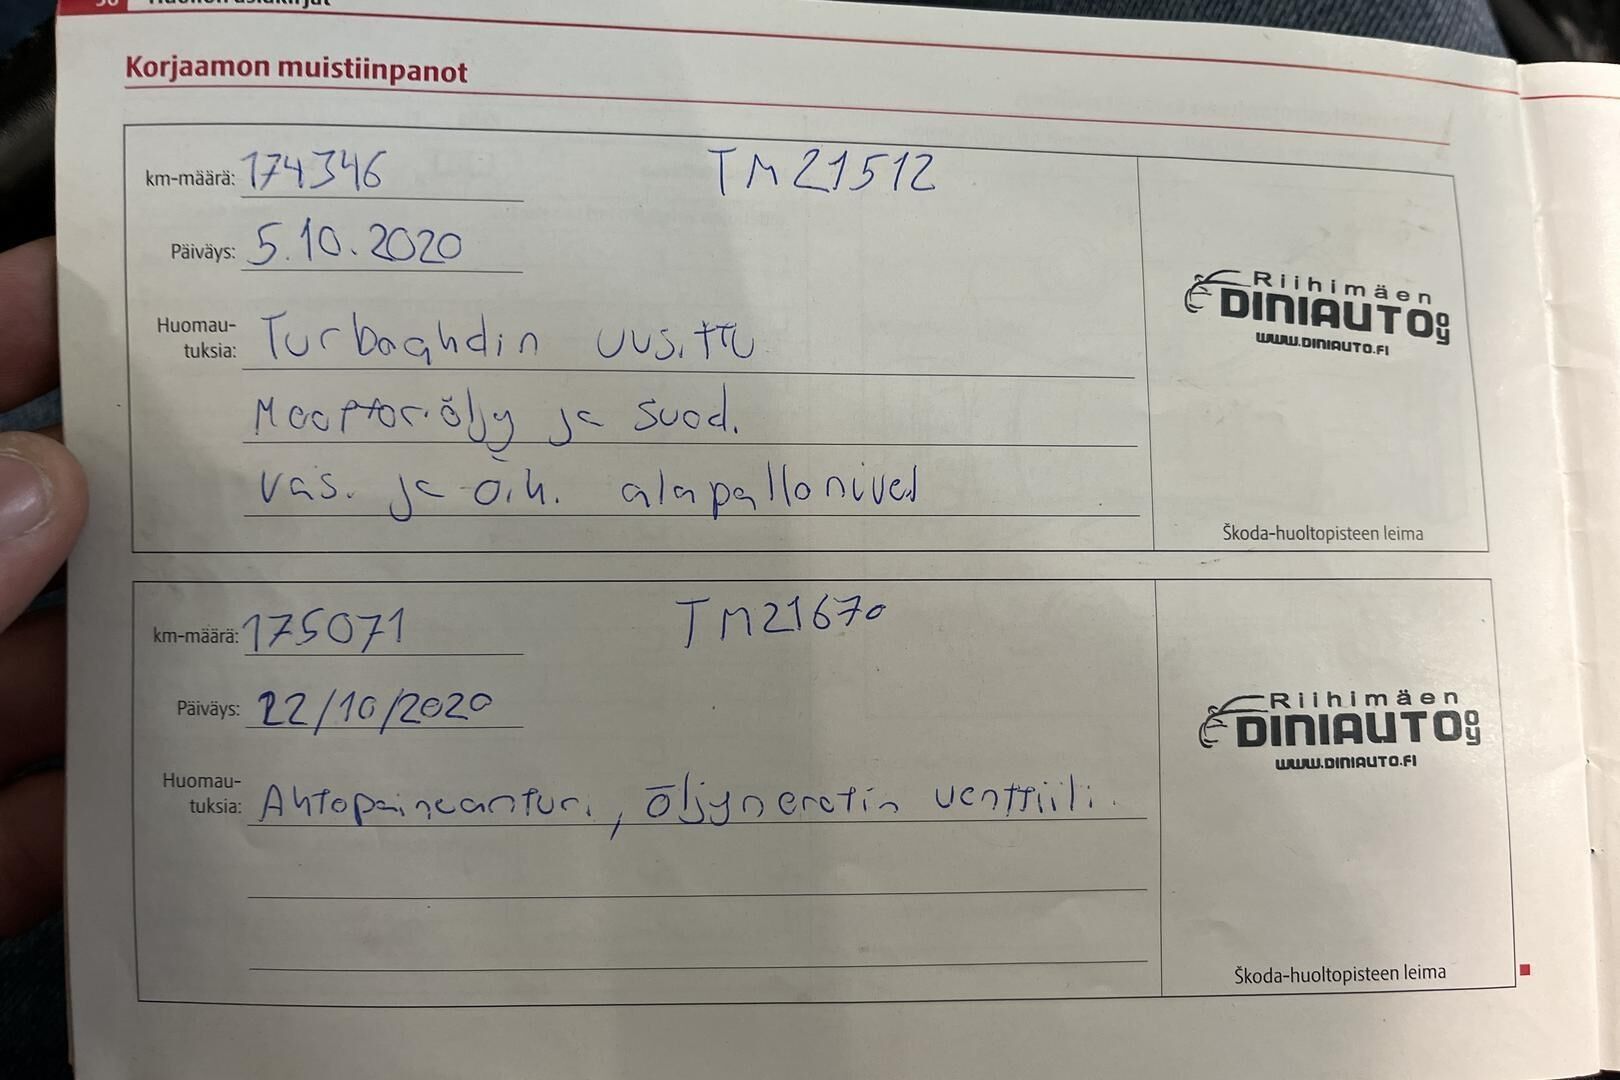 Korjaamon muistiinpanot
km-määrä: 174346 TM21512
Päiväys: 5.10.2020
Huomau-
tuksia: Turboahdin uusittu
Moottoriöljy ja suod.
vas. ja oik. alapallonivel
Riihimäen
DINIAUTO OY
WWW.DINIAUTO.FI
Škoda-huoltopisteen leima
km-määrä: 175071 TM21670
Päiväys: 22/10/2020
Huomau-
tuksia: Ahtopaineanturi, öljynerotin venttiili.
Riihimäen
DINIAUTO OY
WWW.DINIAUTO.FI
Škoda-huoltopisteen leima